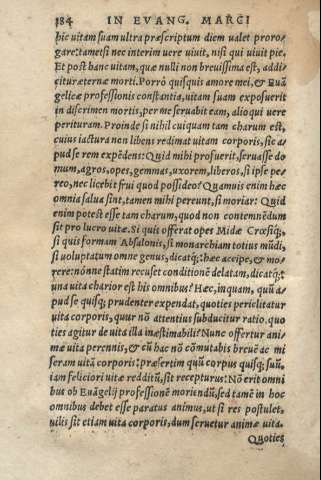 184 IN EVANG. MARCI
hic uitam suam ultra præscriptum diem ualet proro-
gare: tametsi nec interim uere uiuit, nisi qui uiuit pie.
Et post hanc uitam, quæ nulli non breuissima est, addi-
citur æternæ morti. Porrò quisquis amore mei, & Euã
gelicæ professionis constantia, uitam suam exposuerit
in discrimen mortis, per me seruabit eam, alioqui uere
perituram. Proinde si nihil cuiquam tam charum est,
cuius iactura non libens redimat uitam corporis, sic a-
pud se rem expẽdens: Quid mihi profuerit, seruasse do
mum, agros, opes, gemmas, uxorem, liberos, si ipse pe-
reo, nec licebit frui quod possideo? Quamuis enim hæc
omnia salua sint, tamen mihi pereunt, si moriar: Quid
enim potest esse tam charum, quod non contemnẽdum
sit pro lucro uitæ. Si quis offerat opes Midæ Crœsiq́;
si quis formam Absalonis, si monarchiam totius mũdi,
si uoluptatum omne genus, dicatq́;: hæc accipe, & mo-
rere: nónne statim recuset conditionẽ delatam, dicatq́;:
una uita charior est his omnibus? Hæc, inquam, quũ a-
pud se quisq; prudenter expendat, quoties periclitatur
uita corporis, quur nō attentius subducitur ratio, quo
ties agitur de uita illa inæstimabili? Nunc offertur ani-
mæ uita perennis, & cũ hac nō cōmutabis breuē ac mi
seram uitā corporis: præsertim quũ corpus quisq; suũ,
iam feliciori uitæ redditũ, sit recepturus: Nō erit omni
bus ob Euāgelij professionē moriendũ, sed tamē in hoc
omnibus debet esse paratus animus, ut si res postulet,
uilis sit etiam uita corporis, dum seruetur animæ uita.
Quoties